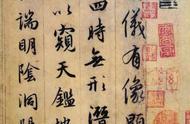 儀有像顯
四時無形潛
以窺天鑑地
端明陰洞